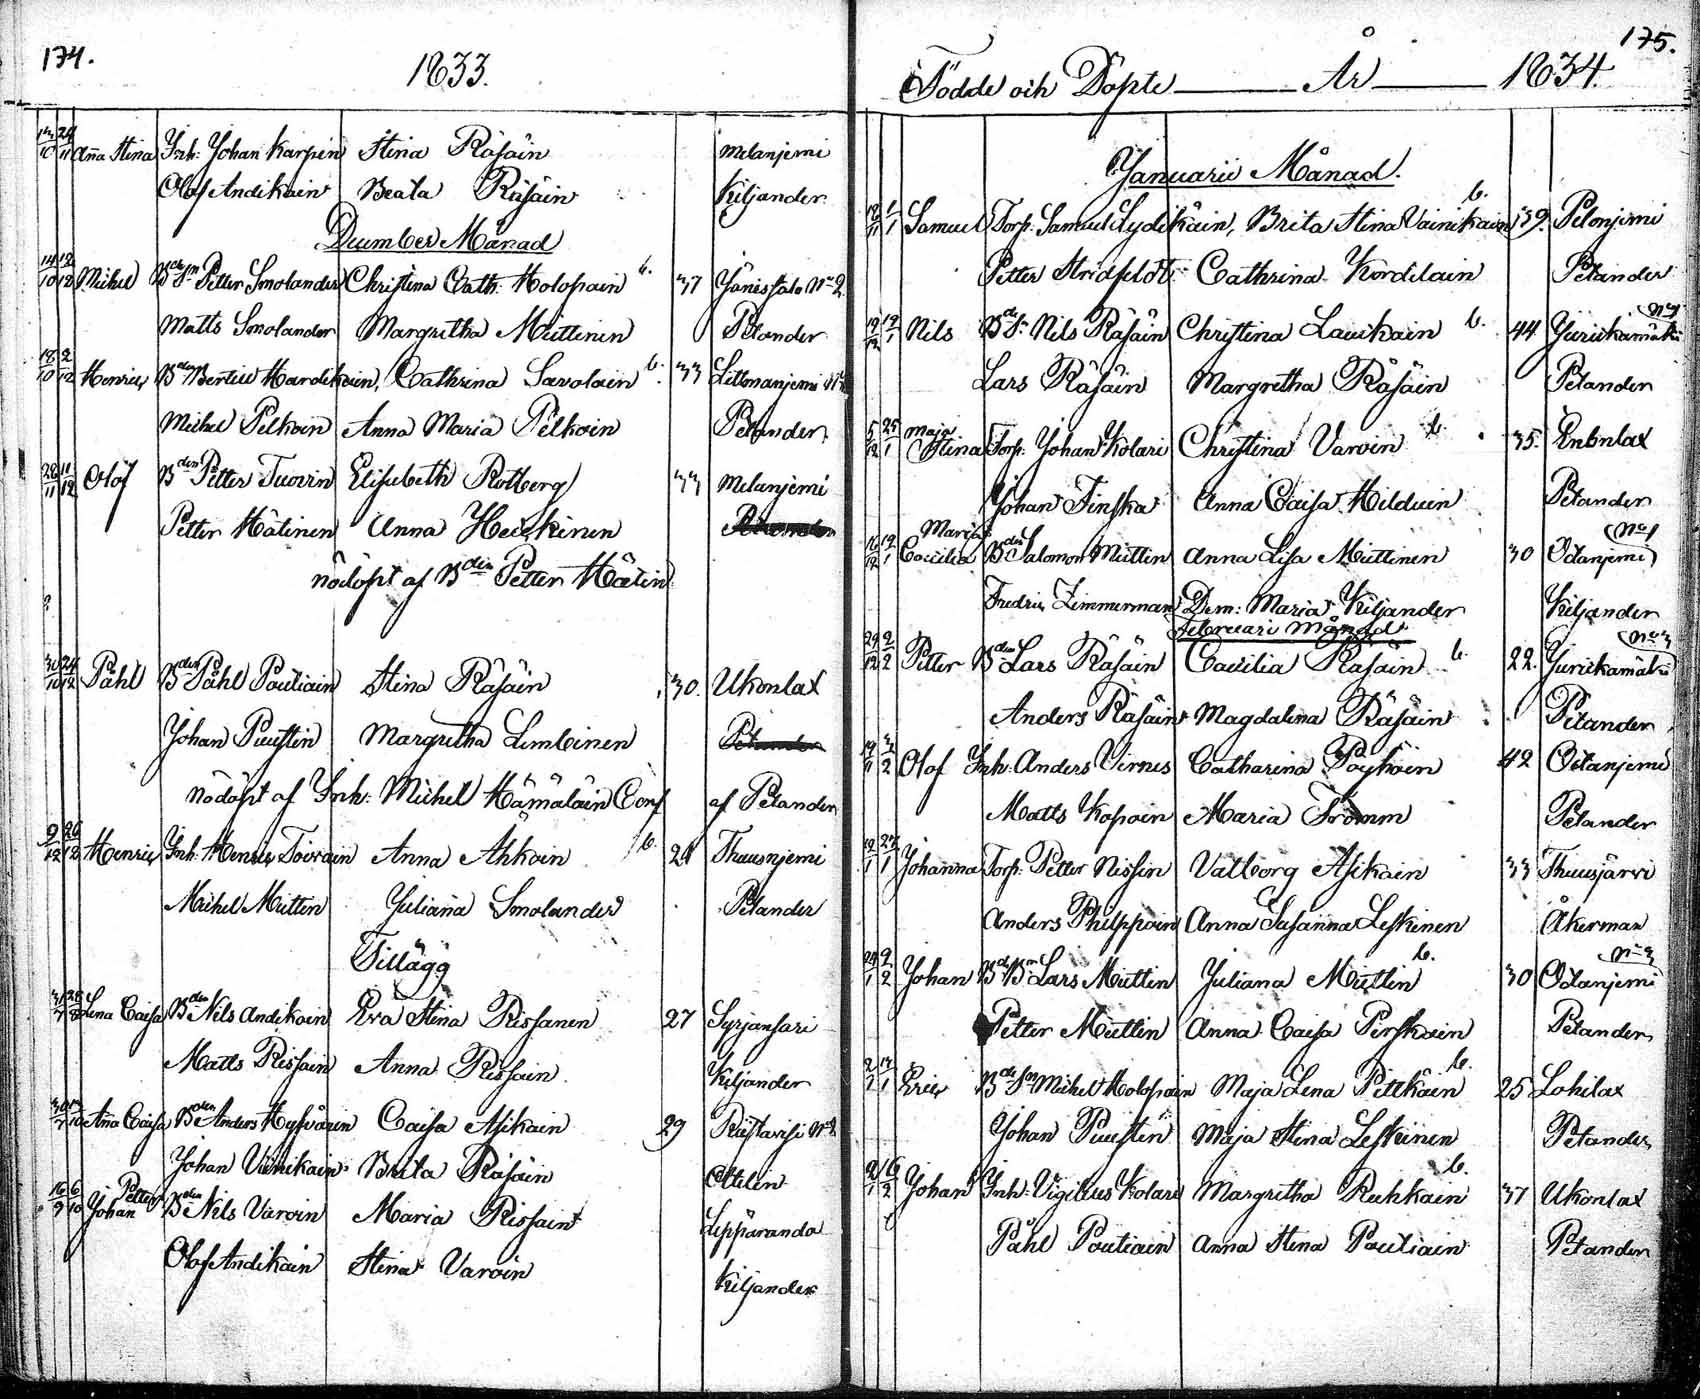 174.
1833.
13/10 24/11 Anna Stina Inh: Johan Karpin Stina Räsäin Melanjemi
Olof Andikain Beata Räsäin Kiljander
December Månad
14/10 12/12 Michel Petter Smolander Christina Cath: Holopain b. 37 Jänissalo No 2
Matts Smolander Margretha Miettinen Petander
18/10 2/12 Henric Bertil Hardikain, Cathrina Savolain b. 33
Michel Pelkoin Anna Maria Pelkoin Petander
28/11 11/12 Olof Bden Petter Tuovin Elisabeth Rotberg 33 Melanjemi
Petter Hätinen Anna Heickinen
nödöpt af Bden Petter Hätin
30/10 24/12 Påhl Bden Påhl Poutiain Stina Räsäin 30. Ukonlax
Johan Puustin Margretha Limbeinen Petander
nödöpt af Inh: Michel Hämäläin Conf af Petander
9/12 26/12 Henric Inh: Henric Toivain Anna Ahkoin b. 28 Thuusnjemi
Michel Miettin Juliana Smolander Petander
Tillägg
31/7 28/8 Lena Caisa Bden Nils Andikain Eva Stina Rissanen 27 Syrjänsari
Matts Rissain Anna Rissain Kiljander
Anna Caisa Bden Anders Hyfvärin Caisa Asikain 29 Riistavesi No 2
Johan Vänikain Brita Räsäin
16/9 6/10 Petter Johan Bden Nils Varoin Maria Rissain Leppäranda
Olof Andikain Stina Varoin Kiljander
175.
Födde och Döpte År 1834.
Januarii Månad.
1/1 Samuel Torp: Samuel Lydikäin, Brita Stina Vainikain b. 39. Pelonjemi
Petter Stridfeldt Cathrina Kordilain Petander
Nils Nils Räsäin Christina Lauikain b. 44 Juurickamäki No 1
Lars Räsäin Margretha Räsäin Petander
5/12 25/1 Maja Stina Torp: Johan Kolari Christina Varoin b. 35. Enonlax
Johan Finska Anna Caisa Hilduin Petander
16/12 19/1 Maria Cæcilia Bden Salomon Miettin Anna Lisa Miettinen 30 Ödanjemi No 1
Fredric Zimmerman Dem: Maria Kiljander Kiljander
Februari Månad
29/12 2/2 Petter Bden Lars Räsäin Cæcilia Räsäin b. 22. Juurickamäki No 3
Anders Räsäin Magdalena Räsäin Petander
Olof Inh: Anders Virnes Catharina Pöyhöin 42 Ödanjemi
Matts Kopoin Maria Fromm Petander
Johanna Torp: Petter Nissin Valborg Asikain 33 Thuusjärvi
Anders Philppain Anna Susanna Leskinen Åkerman
29/1 2/2 Johan Lars Miettin Juliana Miettin b. 30 Ödanjemi No 3
Petter Miettin Anna Caisa Pirskain Petander
Eric Michel Holopain Maja Lena Pitkäin b. 25 Lohilax
Johan Puustin Maja Stina Leskinen Petander
Johan Inh: Vigilius Kolari Margretha Ruhkain b. 37 Ukonlax
Påhl Poutiain Anna Stina Poutiain Petander